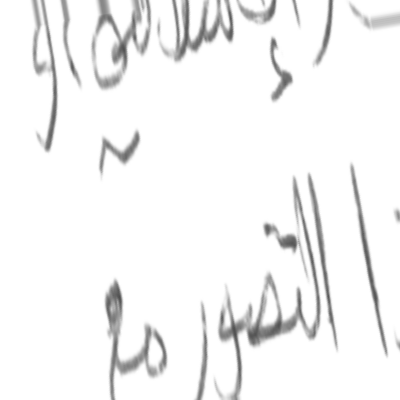 الإسلامي أو
التصور مع